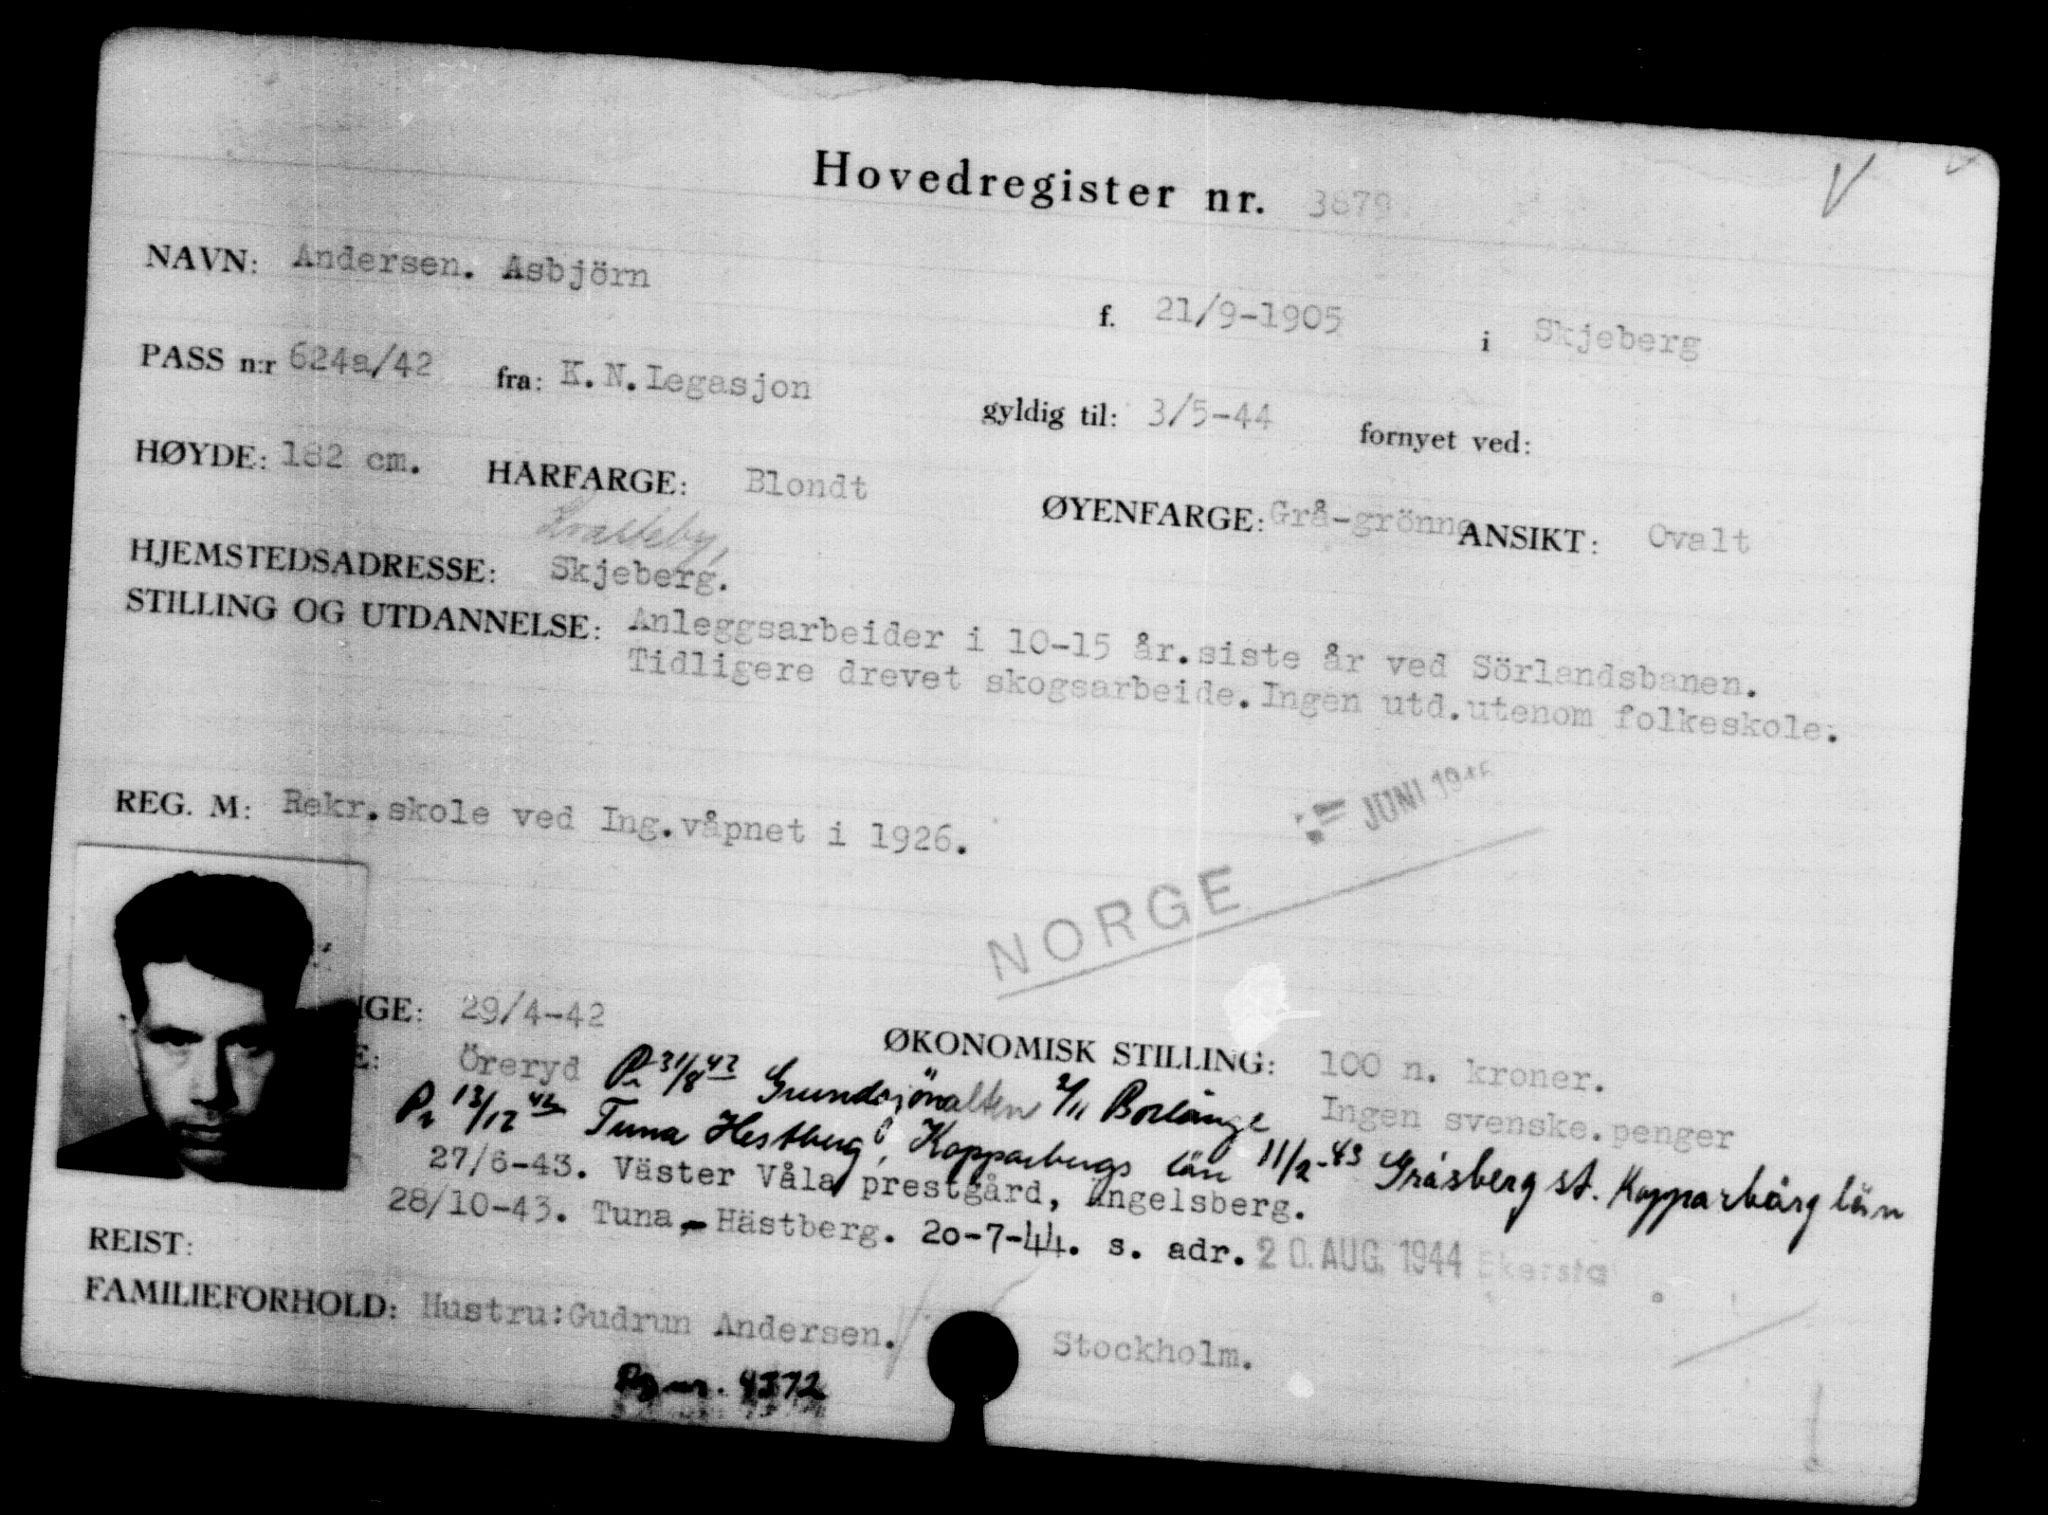 Hovedregister nr. 3679.
NAVN: Andersen. Asbjörn f. 21/9-1905 i Skjeberg
PASS n:r 624a/42 fra: K.N.Legasjon gyldig til: 3/5-44 fornyet ved:
HØYDE: 182 cm. HARFARGE: Blondt ØYENFARGE: Grå-grönne ANSIKT: Ovalt
HJEMSTEDSADRESSE: Skjeberg.
STILLING OG UTDANNELSE: Anleggsarbeider i 10-15 år.siste år ved Sörlandsbanen.
Tidligere drevet skogsarbeide.Ingen utd.utenom folkeskole.
JUNI
REG. M: Rekr.skole ved Ing.våpnet i 1926.
NORGE
IGE: 29/4-42 ØKONOMISK STILLING: 100 n. kroner.
E: Öreryd Pr 31/8 42 2/11 Borlänge Ingen svenske.penger
Pr 13/12 42 Tuna Hestberg, Kopparbergs län 11/2-43 Gräsberg st. Kopparbärg län
27/6-43. Väster Våla prestgård, Ängelsberg.
28/10-43. Tuna-Hästberg. 20-7-44. s. adr. 20. AUG. 1944 Ekersta
REIST:
FAMILIEFORHOLD: Hustru:Gudrun Andersen. Stockholm.
4372